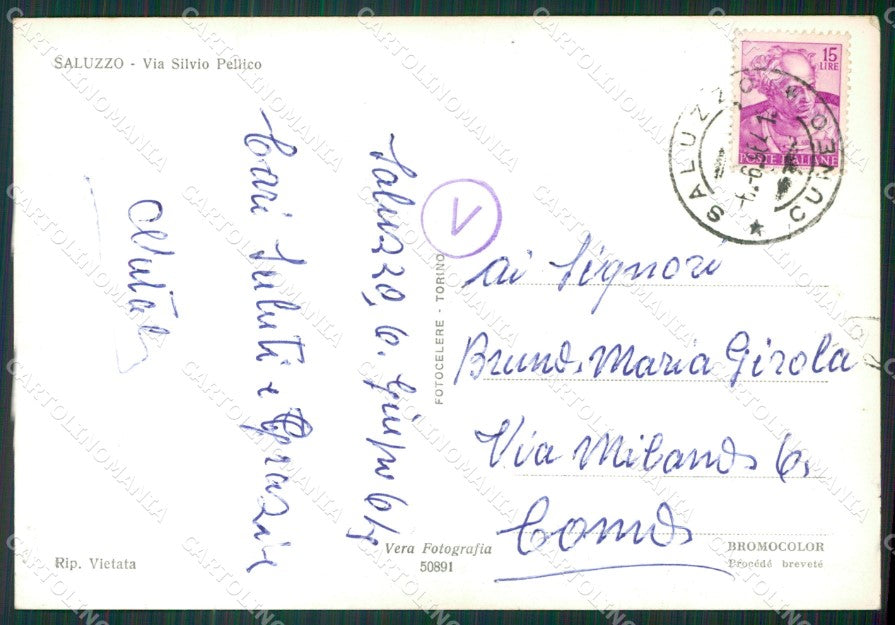 SALUZZO - Via Silvio Pellico
15
LIRE
POSTE ITALIANE
SALUZZO
CUNEO
V
Saluzzo, 6.
Cari Saluti e Grazie
ai Signori
Bruno, Maria Girola
Via Milano 6,
Como
FOTOCELERE - TORINO
Vera Fotografia
50891
BROMOCOLOR
Procédé breveté
Rip. Vietata
CARTOLINOMANIA